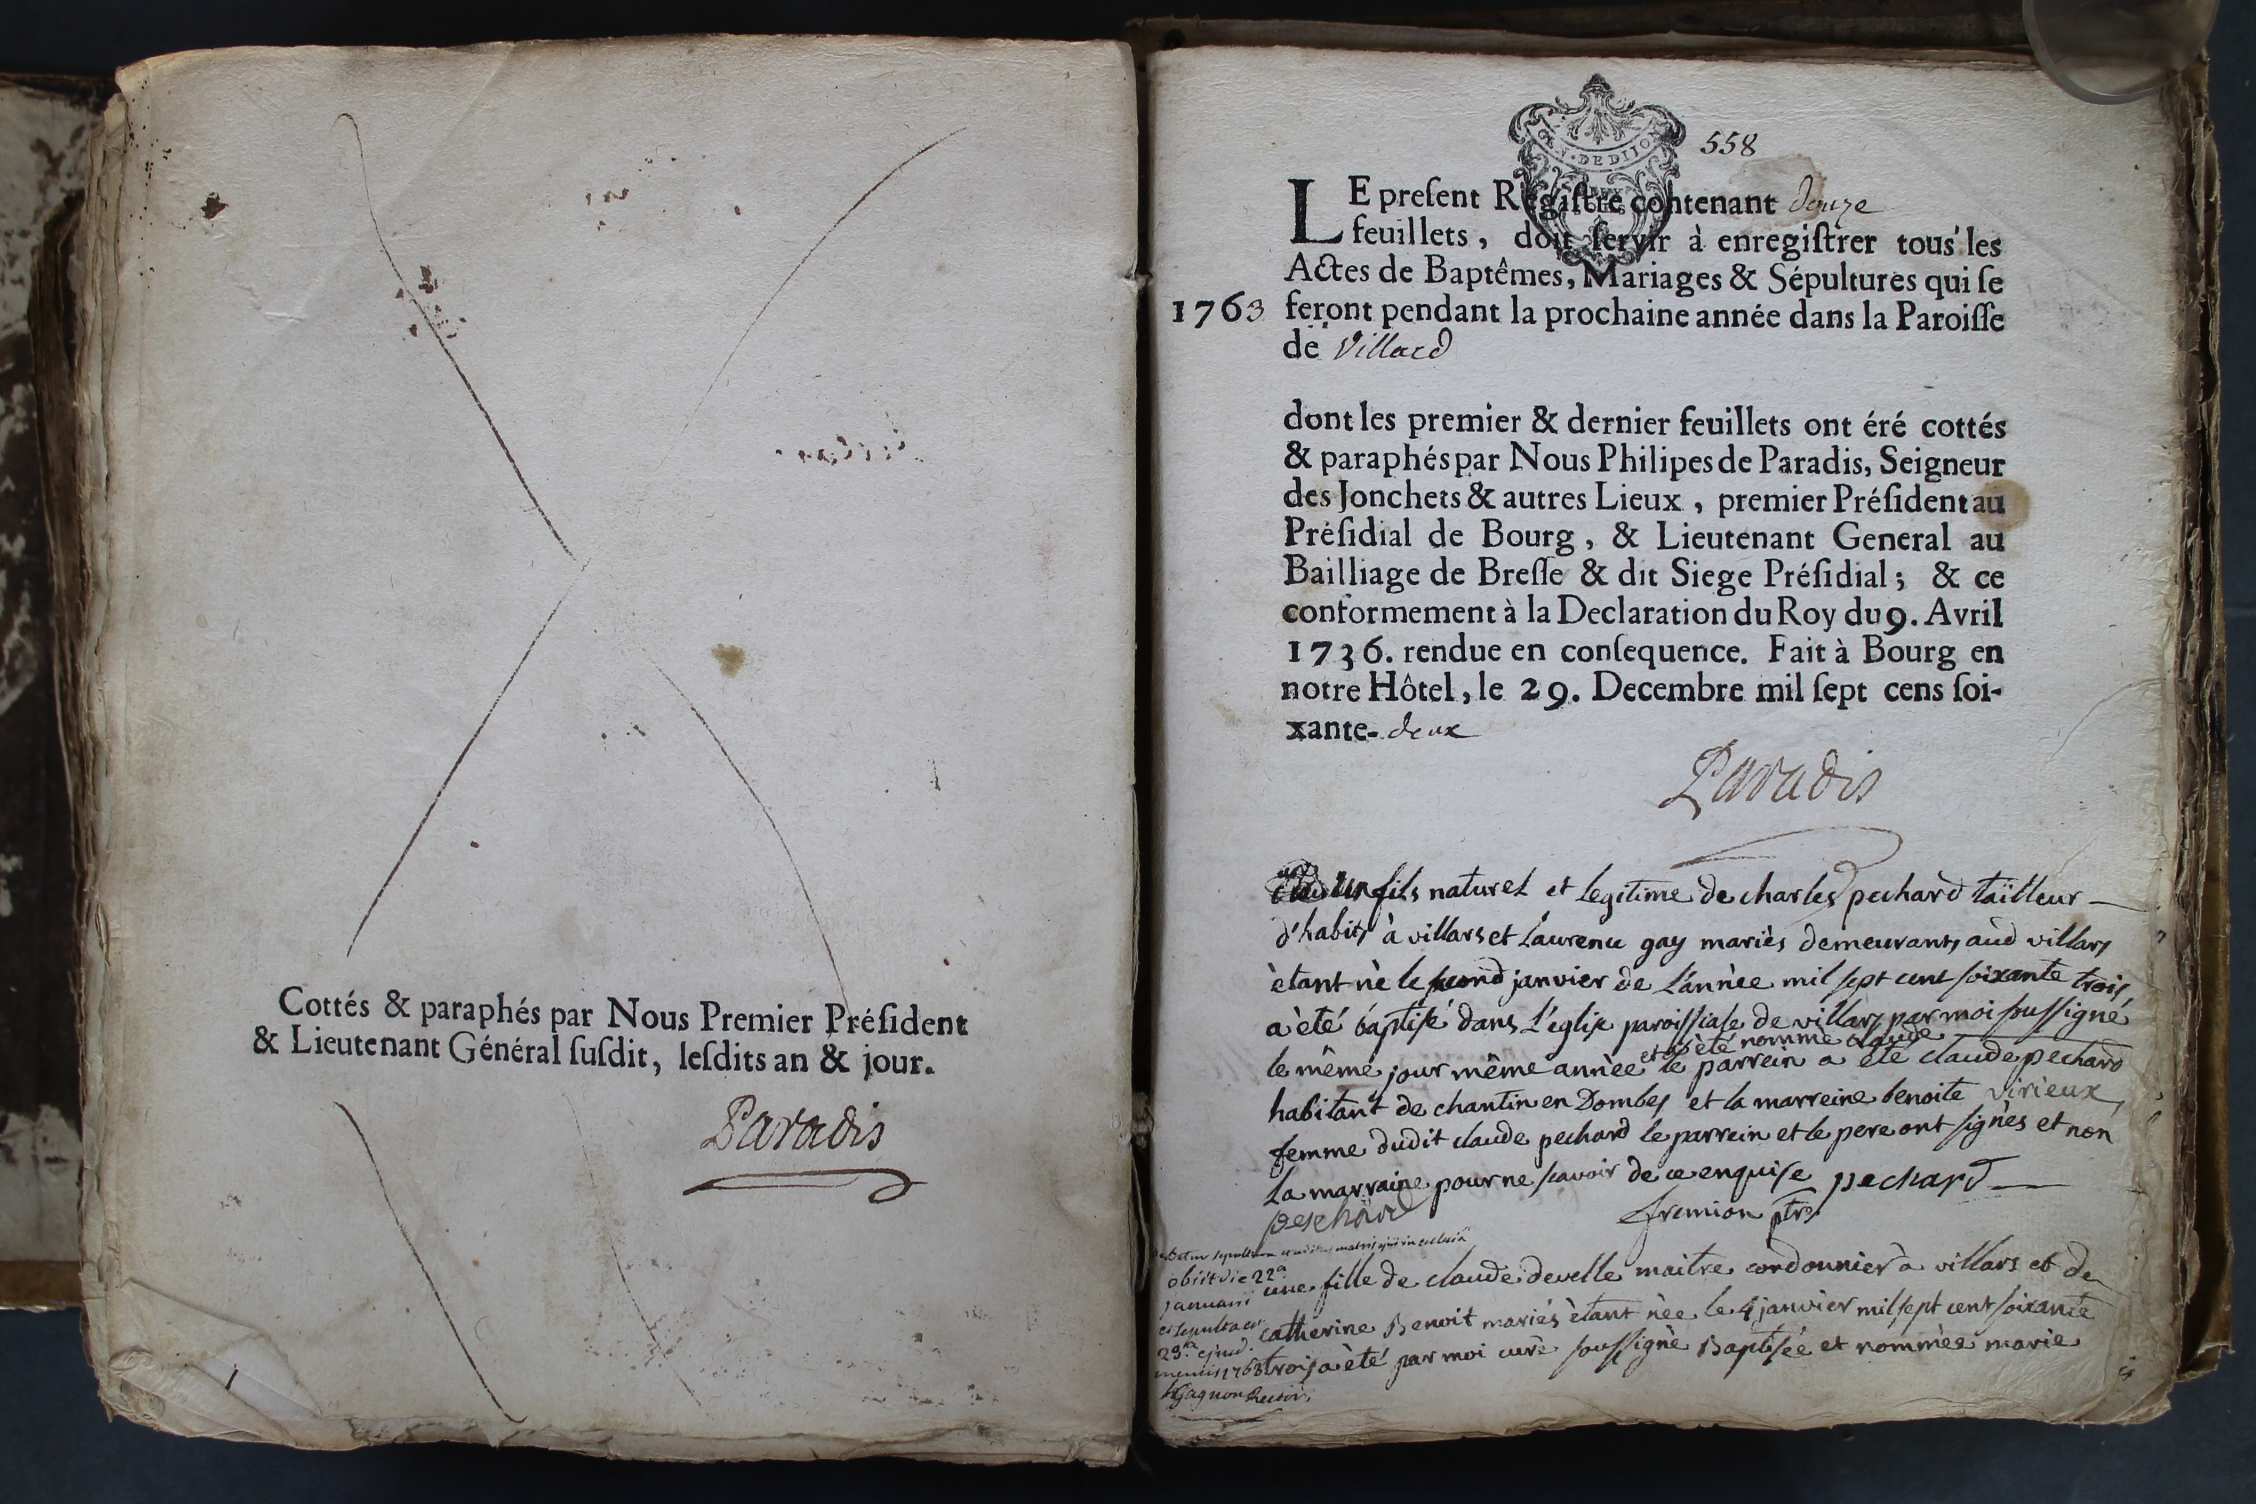 Cottés & paraphés par Nous Premier Préſident
& Lieutenant Général ſuſdit, leſdits an & jour.
Paradis
GEN. DE DIJON
558
LE preſent Regiſtre contenant douze
feuillets, doit ſervir à enregiſtrer tous les
Actes de Baptêmes, Mariages & Sépultures qui ſe
1763 feront pendant la prochaine année dans la Paroiſſe
de Villard
dont les premier & dernier feuillets ont éré cottés
& paraphés par Nous Philipes de Paradis, Seigneur
des Jonchets & autres Lieux, premier Préſident au
Préſidial de Bourg, & Lieutenant General au
Bailliage de Breſſe & dit Siege Préſidial; & ce
conformement à la Declaration du Roy du 9. Avril
1736. rendue en conſequence. Fait à Bourg en
notre Hôtel, le 29. Decembre mil ſept cens ſoi-
xante-deux
Paradis
un fils naturel et legitime de charles pechard tailleur
d'habits à villars et Laurence gay mariès demeurants aud villars
ètant nè le second janvier de l'année mil sept cent soixante trois
a èté baptisé dans l'eglise paroissiale de villars par moi soussigné
et a èté nommé claude
le même jour même année le parrein a été claude pechard
habitant de chantin en Dombes et la marreine benoite virieux
femme dudit claude pechard le parrein et le pere ont signès et non
la marraine pour ne scavoir de ce enquise pechard
peschard
fremion ptre
obiit die 22a
januarii
et sepulta est
23a ejusd.
mensis 1763
Gagnon Rector
une fille de claude develle maitre cordonnier à villars et de
catherine Benoit mariés ètant née le 4 janvier mil sept cent soixante
trois a èté par moi curè soussignè Baptisée et nommèe marie